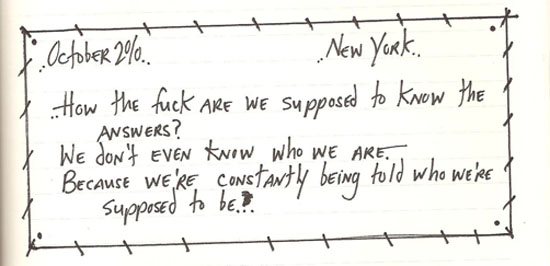 ..October 2%.. ..New York..
..How the fuck ARE WE supposed to know the
ANSWERS?
WE don't EVEN know who WE ARE.
BECAUSE WE'RE CONSTANTLY being told who WE'RE
supposed to be...